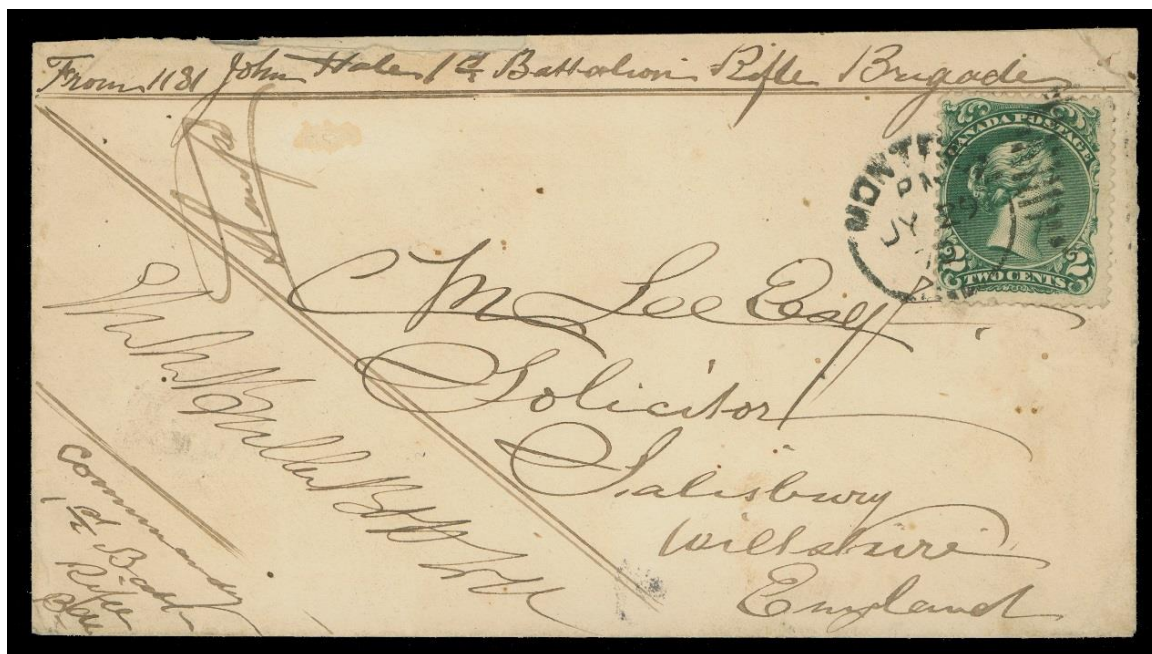 From 1181 John Hale 1st Battalion Rifle Brigade
CANADA POSTAGE
2 TWO CENTS 2
MONT
PM
JY
C M Lee Esqr
Solicitor
Salisbury
Wiltshire
England
Commanding
1st Batt
Rifle